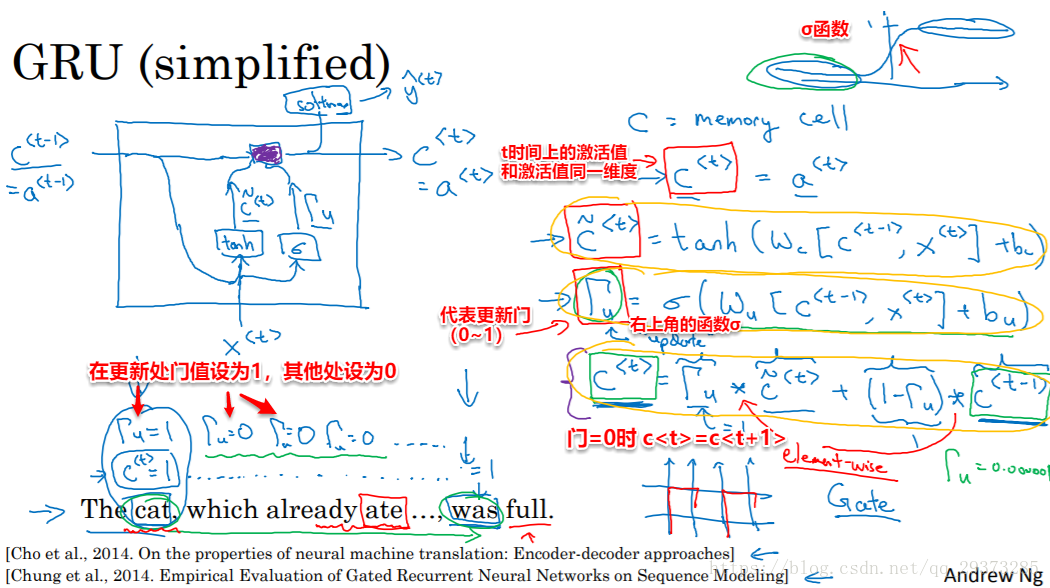 GRU (simplified)
σ函数
softmax
ŷ<t>
c<t-1>
=a<t-1>
c<t>
=a<t>
c̃<t>
Γu
tanh
σ
x<t>
C = memory cell
t时间上的激活值
和激活值同一维度
c<t> = a<t>
c̃<t> = tanh(Wc[c<t-1>, x<t>]+bc)
Γu = σ(Wu[c<t-1>, x<t>]+bu)
代表更新门
(0~1)
右上角的函数σ
update
c<t> = Γu * c̃<t> + (1-Γu) * c<t-1>
门=0时 c<t>=c<t+1>
element-wise
Gate
在更新处门值设为1，其他处设为0
Γu=1 Γu=0 Γu=0 Γu=0 .....
c<t>=1 ..... =1
The cat, which already ate ..., was full.
[Cho et al., 2014. On the properties of neural machine translation: Encoder-decoder approaches]
[Chung et al., 2014. Empirical Evaluation of Gated Recurrent Neural Networks on Sequence Modeling]
https://blog.csdn.net/qq_29373285
Andrew Ng